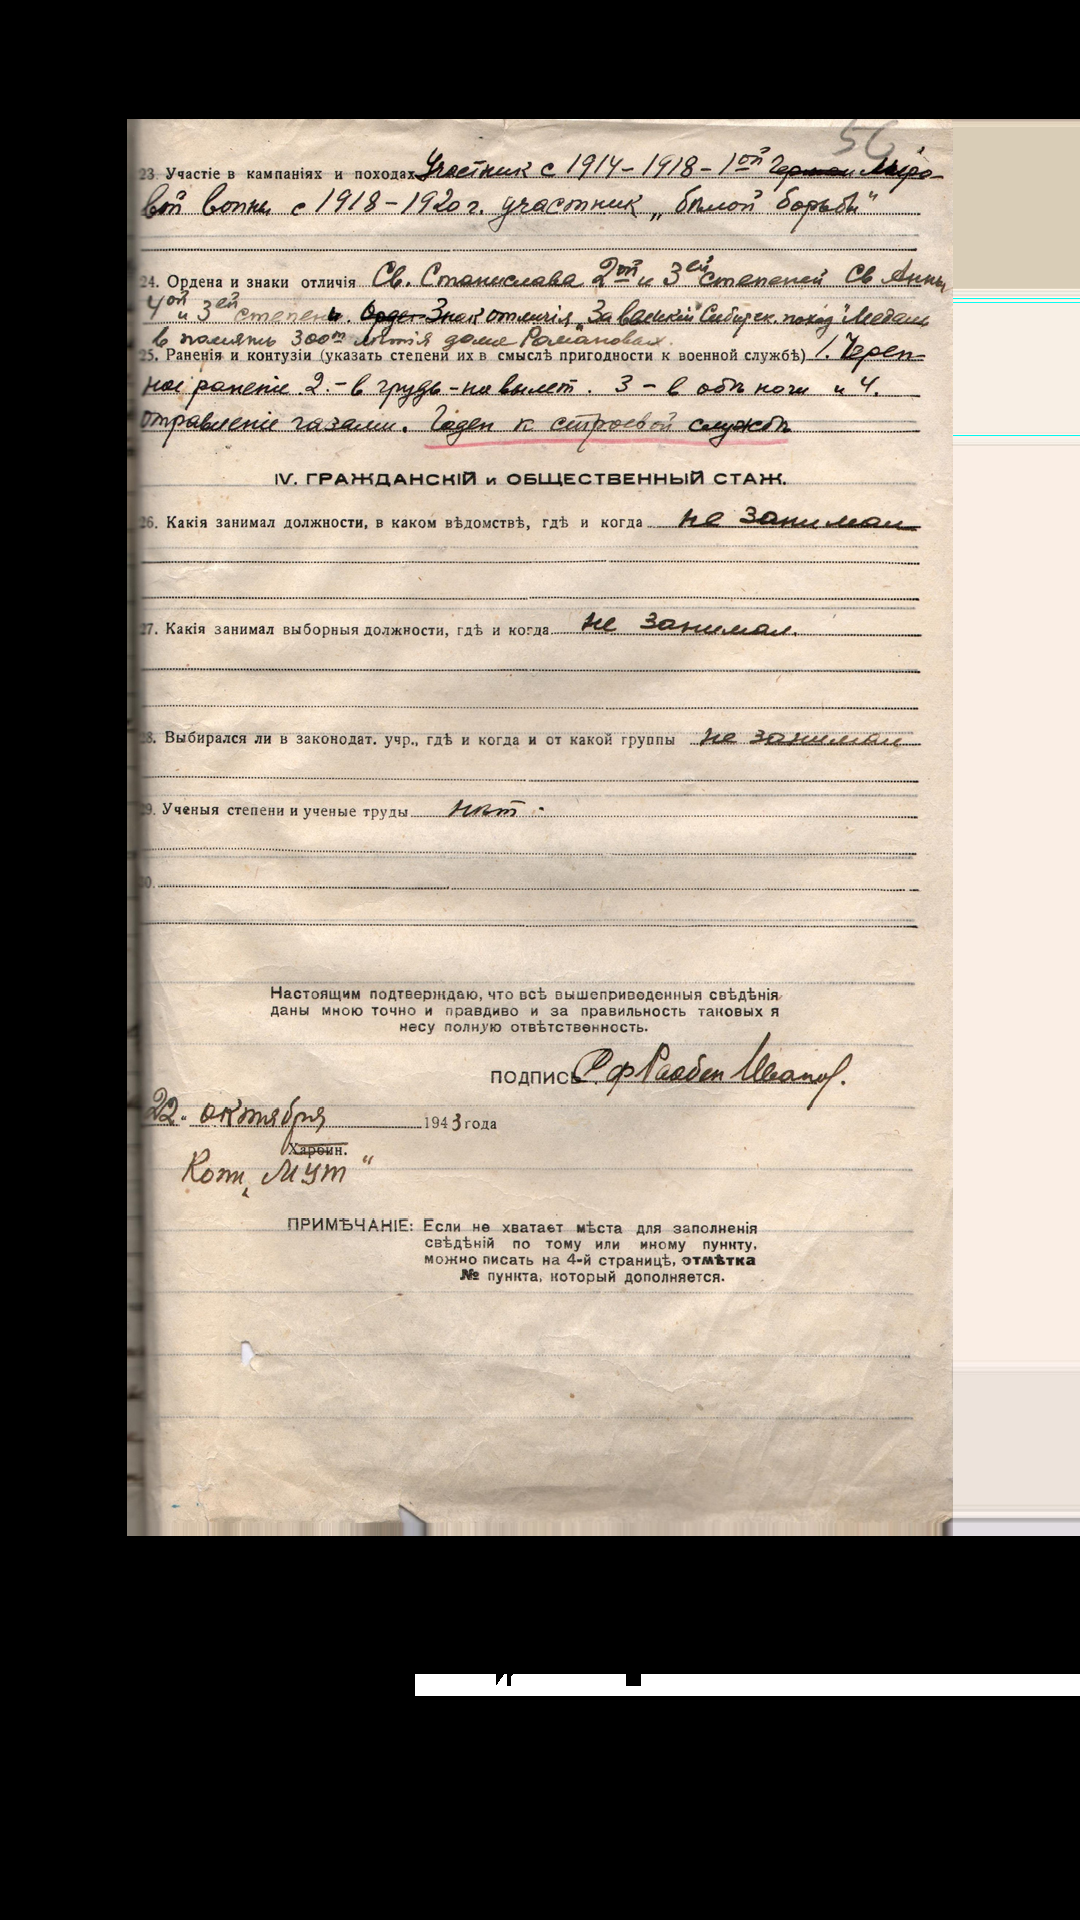 56
23. Участіе в кампаніях и походах Участник с 1914-1918 - 1ой Миро-
вой войны с 1918-1920 г. участник „бѣлой борьбы"
24. Ордена и знаки отличія Св. Станислава 2ой и 3ей степеней Св Анны
4ой и 3ей степени. Знак отличія „За великій Сибирск. поход" Медаль
в память 300т лѣтія дома Романовых.
25. Раненія и контузіи (указать степени их в смыслѣ пригодности к военной службѣ) 1. Череп-
ное раненіе. 2. - в грудь - на вылет. 3 - в обѣ ноги и 4.
отравленіе газами. Годен к строевой службѣ
IV. ГРАЖДАНСКІЙ и ОБЩЕСТВЕННЫЙ СТАЖ.
26. Какія занимал должности, в каком вѣдомствѣ, гдѣ и когда не занимал
27. Какія занимал выборныя должности, гдѣ и когда не занимал.
28. Выбирался ли в законодат. учр., гдѣ и когда и от какой группы не занимал
29. Ученыя степени и ученые труды нѣт.
30.
Настоящим подтверждаю, что всѣ вышеприведенныя свѣдѣнія
даны мною точно и правдиво и за правильность таковых я
несу полную отвѣтственность.
ПОДПИСЬ Р. ф Раабен Иванов.
22. октября 1943 года
Харбин.
Коп. „Мут"
ПРИМѢЧАНІЕ: Если не хватает мѣста для заполненія
свѣдѣній по тому или иному пункту,
можно писать на 4-й страницѣ, отмѣтка
№ пункта, который дополняется.